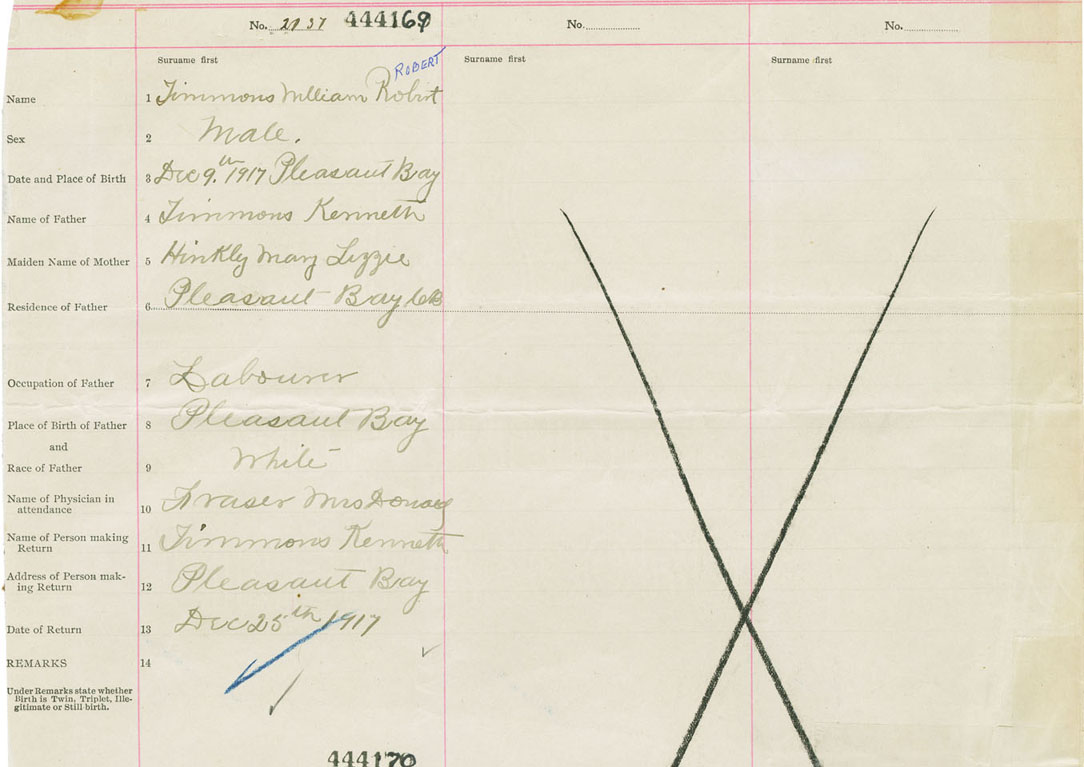 No. 2137 444169 No. No.
Surname first Surname first Surname first
ROBERT
Name 1 Timmons William Robrt
Sex 2 Male.
Date and Place of Birth 3 Dec 9.th 1917 Pleasant Bay
Name of Father 4 Timmons Kenneth
Maiden Name of Mother 5 Hinkly Mary Lizzie
Residence of Father 6 Pleasant Bay CB
Occupation of Father 7 Labourer
Place of Birth of Father 8 Pleasant Bay
and
Race of Father 9 White
Name of Physician in
attendance 10 Fraser Mrs Donald
Name of Person making
Return 11 Timmons Kenneth
Address of Person mak-
ing Return 12 Pleasant Bay
Date of Return 13 Dec 25th 1917
REMARKS 14
Under Remarks state whether
Birth is Twin, Triplet, Ille-
gitimate or Still-birth.
444170